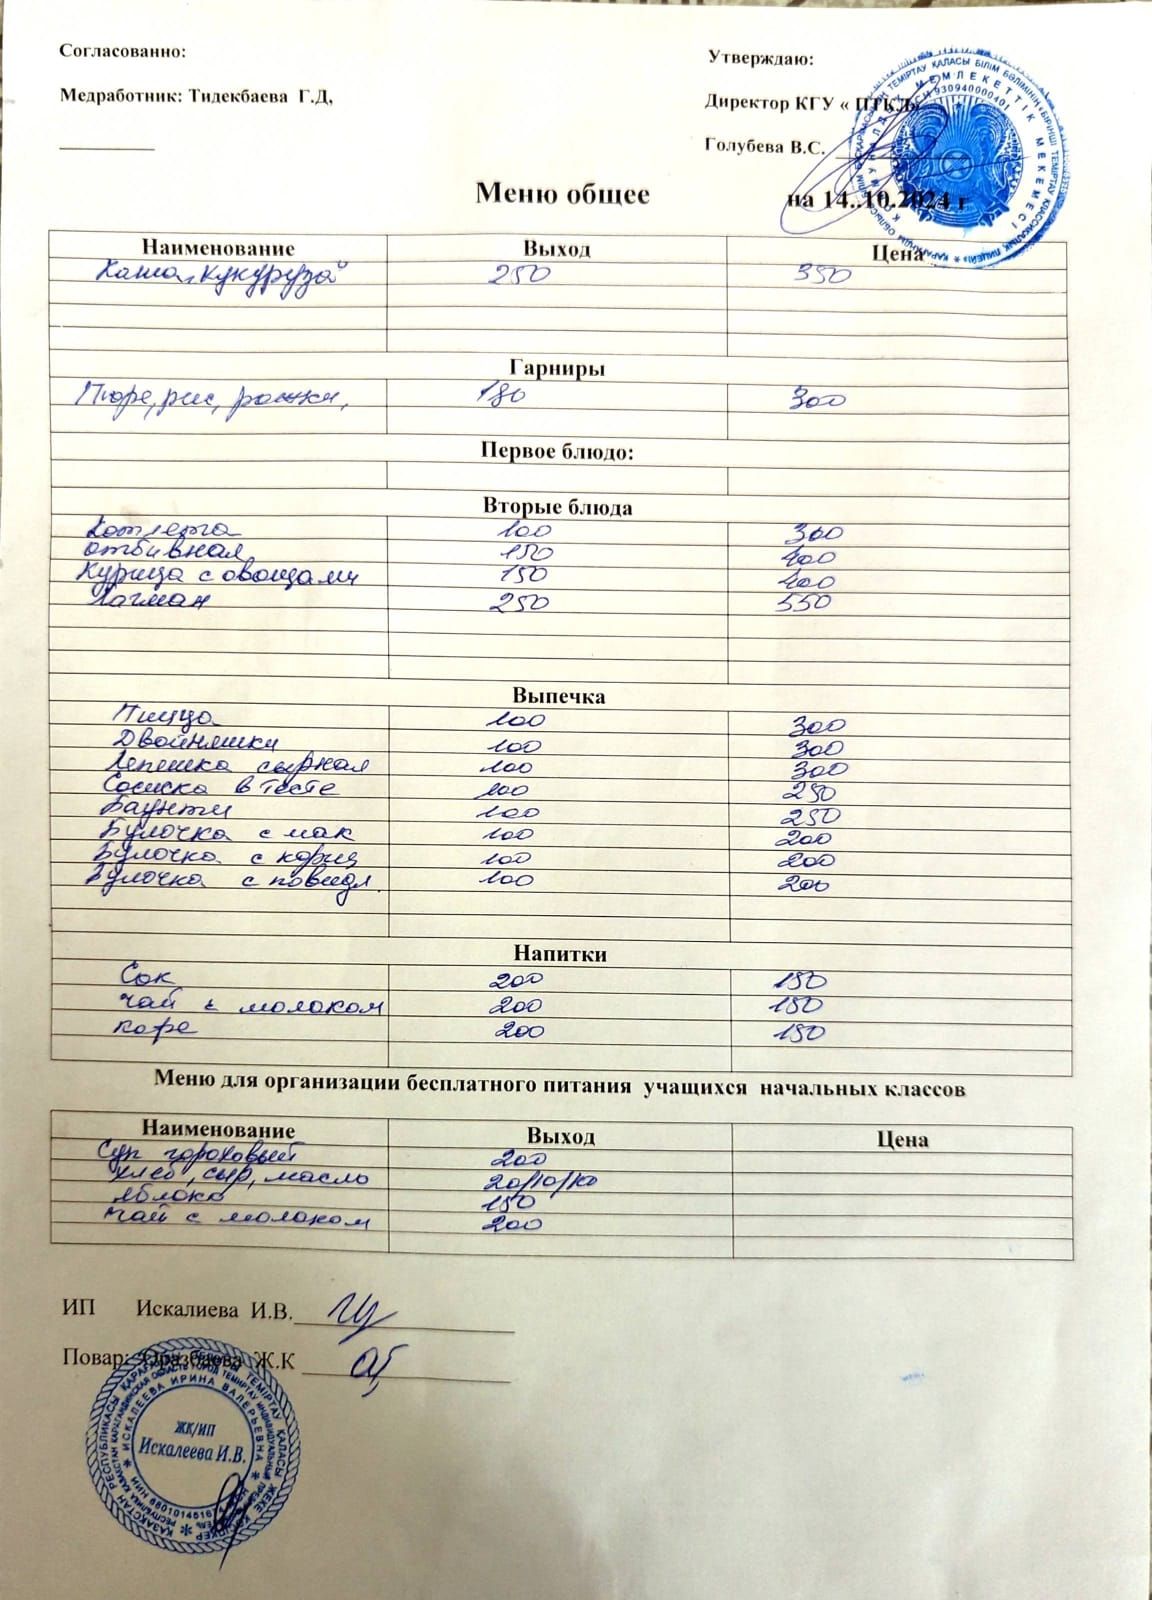 Согласованно: Утверждаю:
Медработник: Тидекбаева Г.Д, Директор КГУ « ПТКЛ»
Голубева В.С.
Меню общее на 14..10.2024 г
Наименование Выход Цена
Каша „Кукуруза" 250 350
Гарниры
Пюре, рис, рожки, 180 300
Первое блюдо:
Вторые блюда
Котлета 100 300
отбивная 150 400
Курица с овощами 150 400
Лагман 250 550
Выпечка
Пицца 100 300
Двойняшки 100 300
Лепешка сырная 100 300
Сосиска в тесте 100 250
Баунти 100 250
Булочка с мак 100 200
Булочка с кориц 100 200
Булочка с повидл. 100 200
Напитки
Сок 200 150
чай с молоком 200 150
кофе 200 150
Меню для организации бесплатного питания учащихся начальных классов
Наименование Выход Цена
Суп гороховый 200
хлеб, сыр, масло 20/10/10
яблоко 150
чай с молоком 200
ИП Искалиева И.В.
Повар: Оразбаева Ж.К
ЖК/ИП
Искалеева И.В.
ИСКАЛЕЕВА ИРИНА ВАЛЕРЬЕВНА